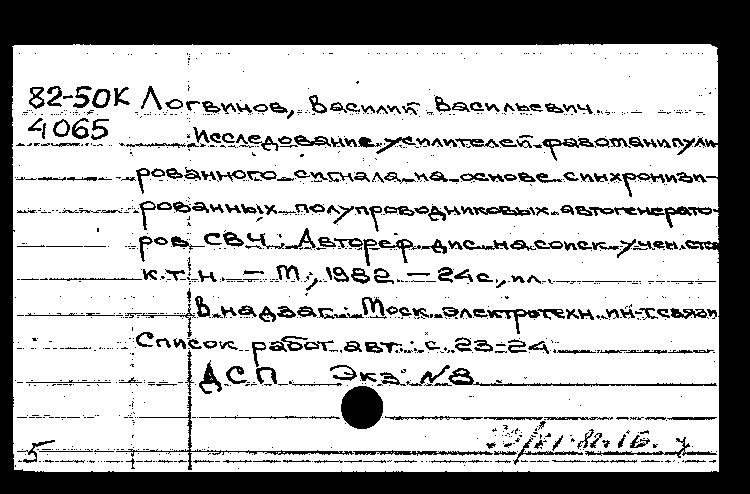 82-50К Логвинов, Василий Васильевич.
4065 Исследование усилителей фазоманипули
рованного сигнала на основе синхронизи-
рованных полупроводниковых автогенерато-
ров СВЧ : Автореф. дис. на соиск. учен. сте
к.т.н. — М., 1982 — 24с., ил.
В надзаг.: Моск. электротехн. ин-т связи
Список работ авт.: с. 23-24
ДСП Экз. №8
5